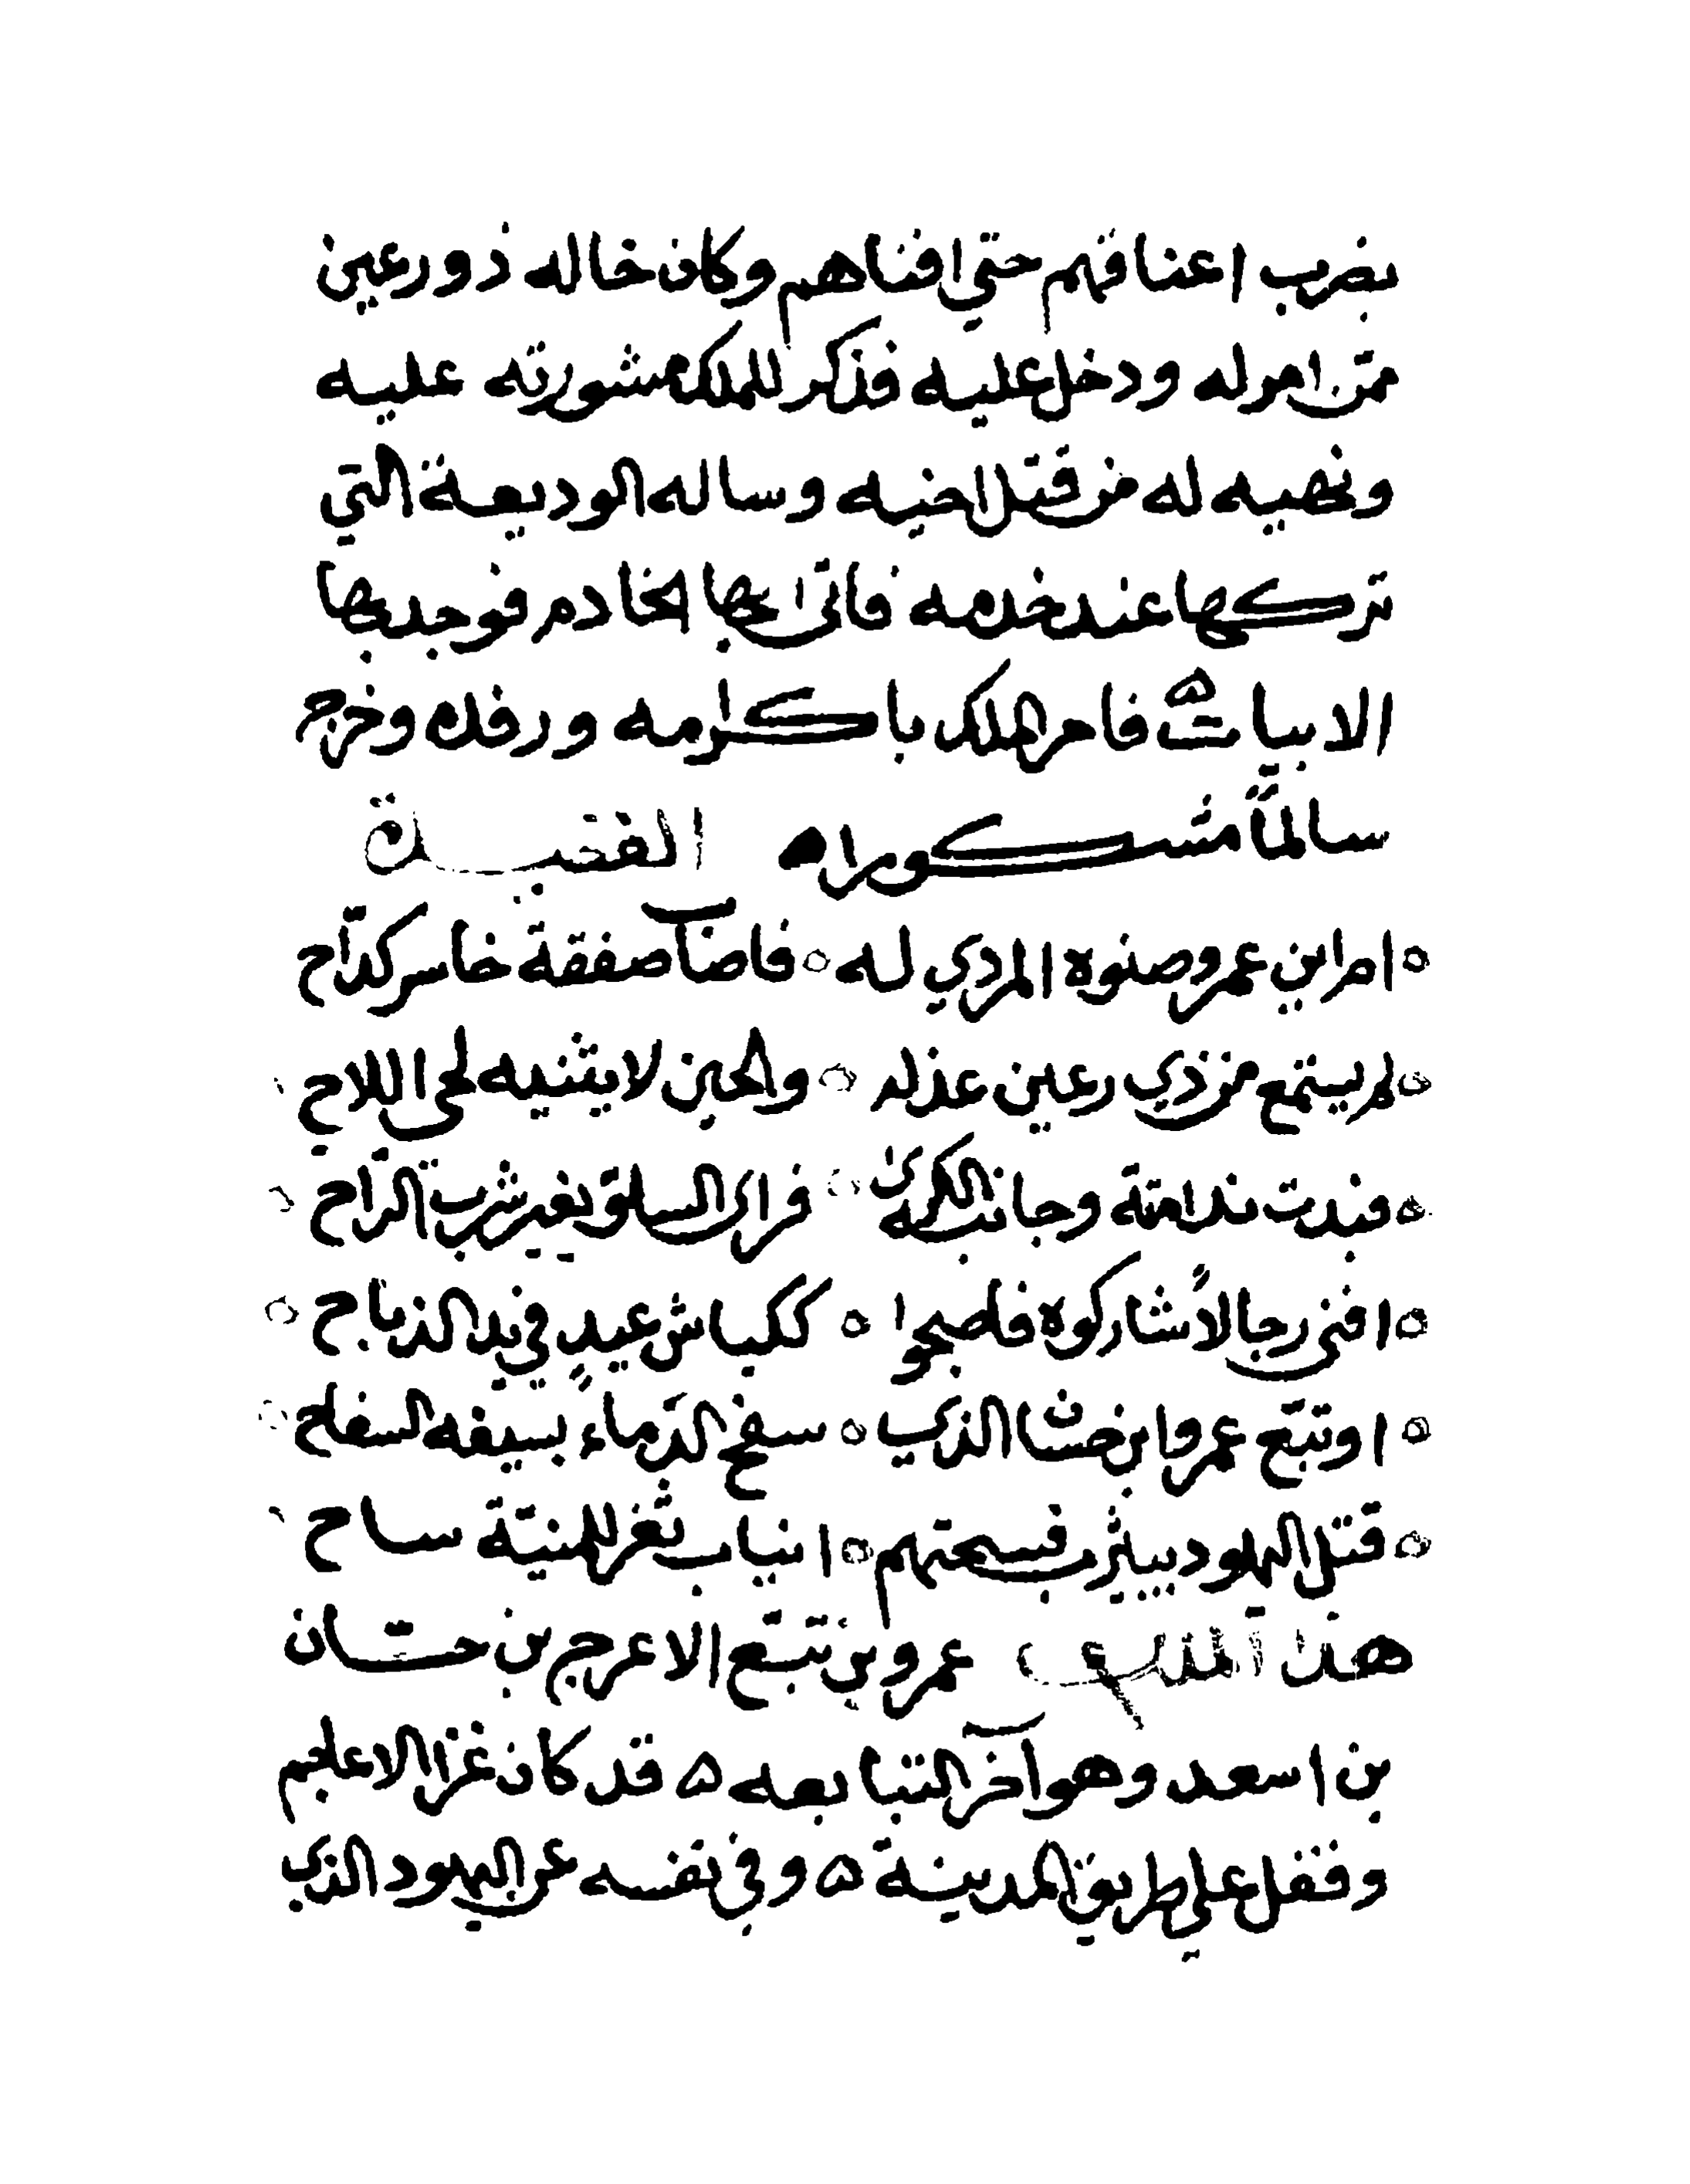 بضرب اعناقهم حتي افناهم وكان خاله ذو رعين
ممن امر له ودخل عليه فذكر للملك مشورته عليه
ونهيه له من قتل اخيه وساله الوديعة التي
تركها عند خدمه فاتى بها الخادم فوجد بها
الابيات ۵ فامر الملك باكرامه ورفده وخرج
سالمًا مشكورا ۵ القصيدة
٥ امر ابن عمرو صنوه المردي له ٥ فاضآ صفقة خاسر كدّاح
٥ لم يستمع من ذي رعين عذله ٥ والحين لا يثنيه لحى اللاح
٥ فبدت ندامته وجانبه الكرى ٥ فراى السلو بغير شرب الرّاح
٥ افنى رجالاً شاركوه فاصبحوا ٥ ككباش عيدٍ في يد الذباح ٥
٥ او تبّع عمرو ابن حسان الذي ٥ سفح الدّماء بسيفه السفاح
٥ قتل اليهود بيثرب فسحتهم ٥ انياب ثغر للمنيّة ساح
هذا الملك عمرو بن تبّع الاعرج بن حسّان
بن اسعد وهو آخر التبابعه ۵ قد كان غزا الاعاجم
وقفل علي طريق المدينة ۵ وفي نفسه على اليهود الذي